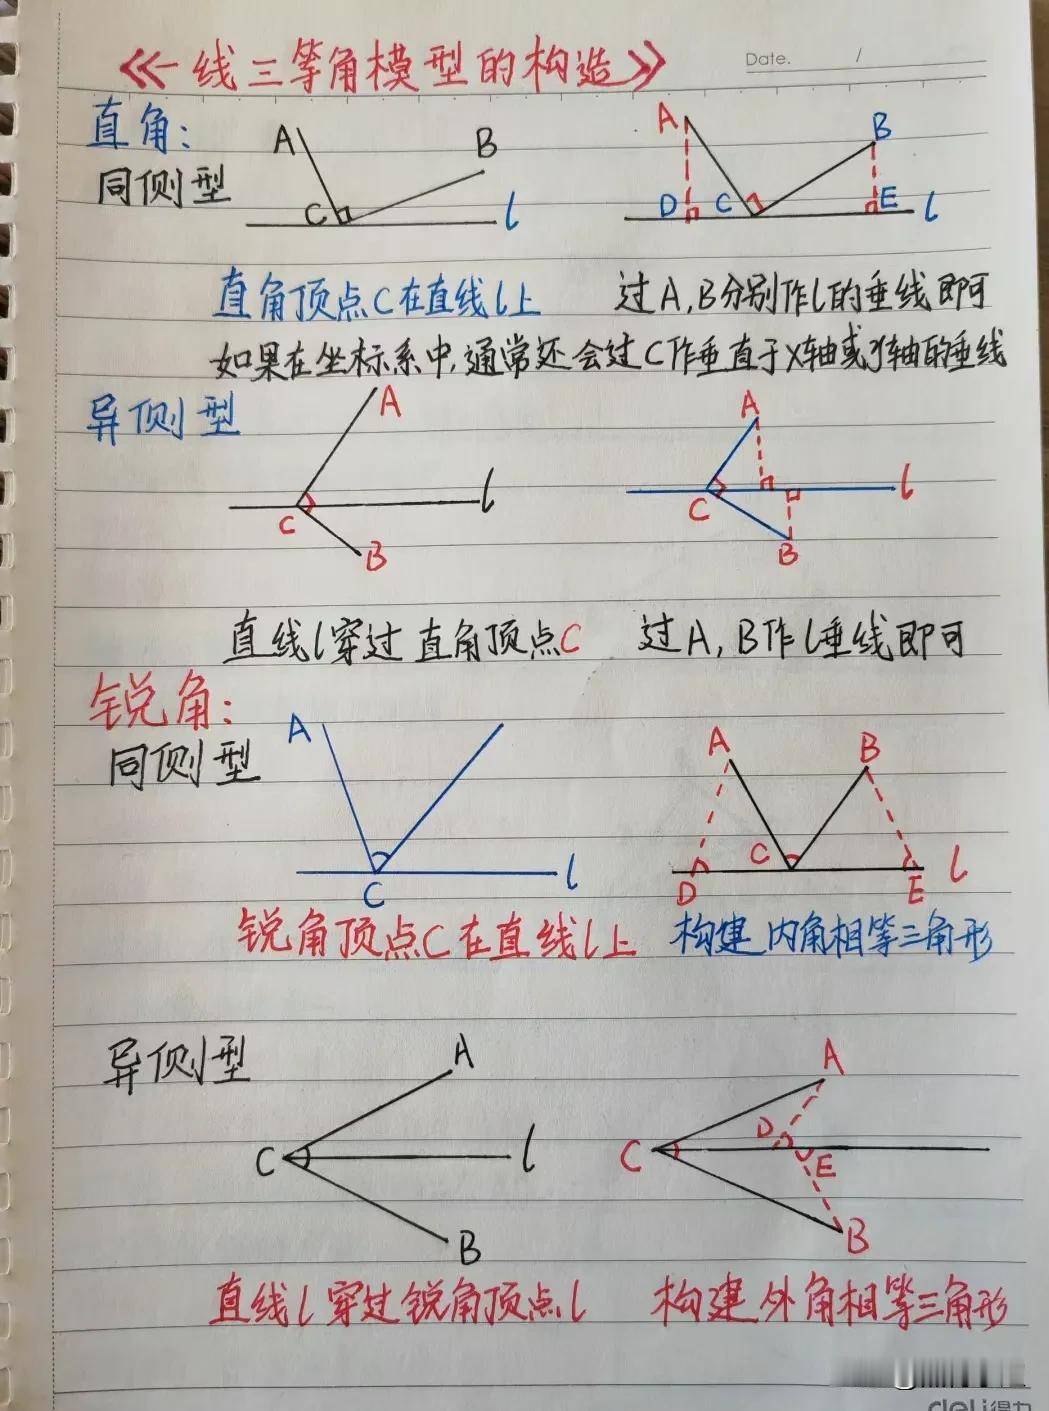 《一线三等角模型的构造》
Date. /
直角:
同侧型
A B C l
A B D C E l
直角顶点C在直线l上 过A,B分别作l的垂线即可
如果在坐标系中,通常还会过C作垂直于X轴或y轴的垂线
异侧型
A l C B
A l C B
直线l穿过直角顶点C 过A,B作l垂线即可
锐角:
同侧型
A C l
A B C D E l
锐角顶点C在直线l上 构建内角相等三角形
异侧型
A C l B
A D C E B
直线l穿过锐角顶点l 构建外角相等三角形
deli得力